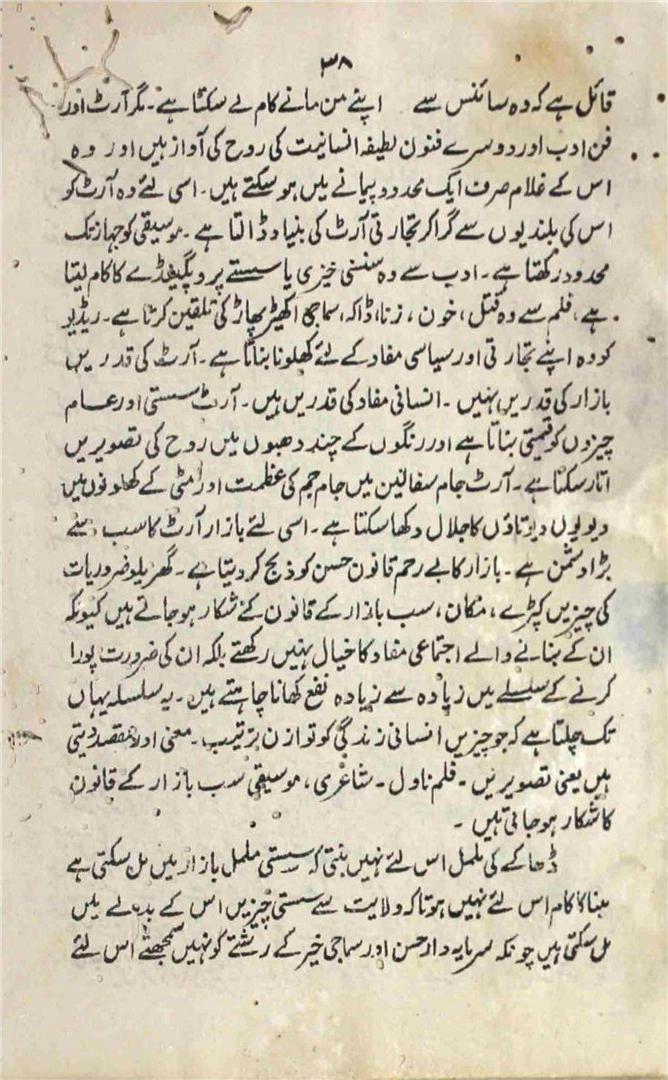 ۳۸
قائل ہے کہ وہ سائنس سے اپنے من مانے کام لے سکتا ہے۔ مگر آرٹ اور
فن ادب اور دوسرے فنون لطیفہ انسانیت کی روح کی آواز ہیں اور وہ
اس کے غلام صرف ایک محدود پیمانے میں ہو سکتے ہیں۔ اسی لئے وہ آرٹ کو
اس کی بلندیوں سے گرا کر تجارتی آرٹ کی بنیاد ڈالتا ہے۔ موسیقی کو جہاز تک
محدود رکھتا ہے۔ ادب سے وہ سنسنی خیزی یا سستے پروپگینڈے کا کام لیتا
ہے، فلم سے وہ قتل، خون، زنا، ڈاکہ، سماجی اکھیڑ پچھاڑ کی تلقین کرتا ہے۔ ریڈیو
کو وہ اپنے تجارتی اور سیاسی مفاد کے لئے کھلونا بناتا ہے۔ آرٹ کی قدریں
بازار کی قدریں نہیں۔ انسانی مفاد کی قدریں ہیں۔ آرٹ سستی اور عام
چیزوں کو قیمتی بناتا ہے اور رنگوں کے چند دھبوں میں روح کی تصویریں
اتار سکتا ہے۔ آرٹ جام سفالین میں جام جم کی عظمت اور مٹی کے کھلونوں میں
دیویوں دیوتاؤں کا جلال دکھا سکتا ہے۔ اسی لئے بازار آرٹ کا سب سے
بڑا دشمن ہے۔ بازار کا بے رحم قانون حسن کو ذبح کر دیتا ہے۔ گھریلو ضروریات
کی چیزیں کپڑے، مکان، سب بازار کے قانون کے شکار ہو جاتے ہیں کیونکہ
ان کے بنانے والے اجتماعی مفاد کا خیال نہیں رکھتے بلکہ ان کی ضرورت پورا
کرنے کے سلسلے میں زیادہ سے زیادہ نفع کھانا چاہتے ہیں۔ یہ سلسلہ یہاں
تک چلتا ہے کہ جو چیزیں انسانی زندگی کو توازن ترتیب۔ معنی اور مقصد دیتی
ہیں یعنی تصویریں۔ فلم ناول۔ شاعری، موسیقی سب بازار کے قانون
کا شکار ہو جاتی ہیں۔
ڈھاکے کی ململ اس لئے نہیں بنتی کہ سستی ململ بازار میں مل سکتی ہے
مینا کا کام اس لئے نہیں ہوتا کہ ولایت سے سستی چیزیں اس کے بدلے میں
مل سکتی ہیں چونکہ سرمایہ دار حسن اور سماجی خیر کے رشتے کو نہیں سمجھتے اس لئے